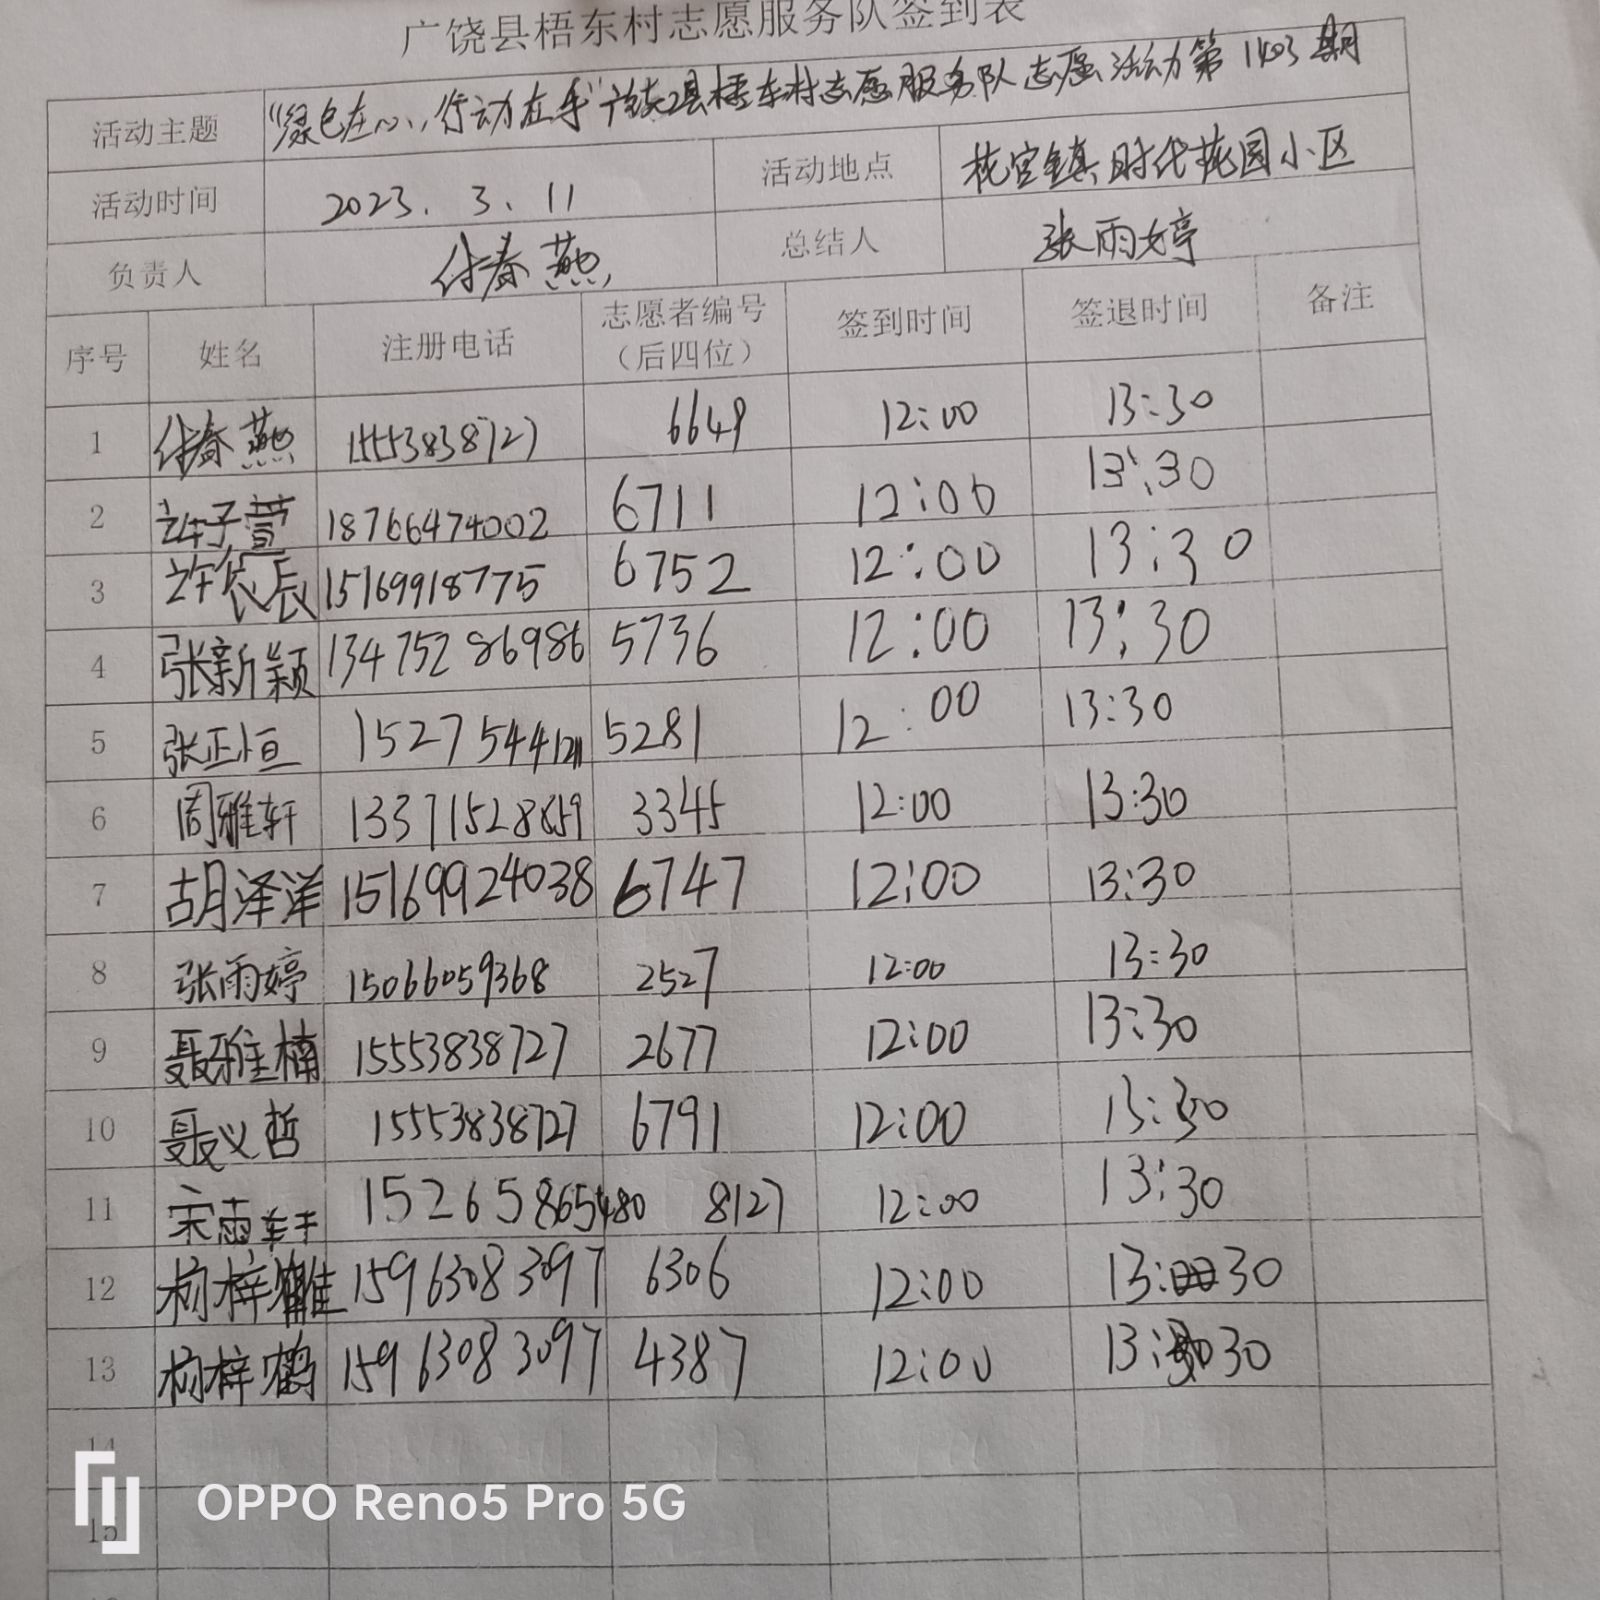 广饶县梧东村志愿服务队签到表
活动主题 "绿色在心,行动在手"广饶县梧东村志愿服务队志愿活动第1403期
活动时间 2023.3.11 活动地点 花官镇时代花园小区
负责人 付春燕 总结人 张雨婷
序号 姓名 注册电话 志愿者编号(后四位) 签到时间 签退时间 备注
1 付春燕 15553838727 6649 12:00 13:30
2 许子萱 18766474002 6711 12:00 13:30
3 许宸辰 15169918775 6752 12:00 13:30
4 张新颖 13475286986 5736 12:00 13:30
5 张正恒 1527544 5281 12:00 13:30
6 周雅轩 13371528859 3345 12:00 13:30
7 胡泽洋 15169924038 6747 12:00 13:30
8 张雨婷 15066059368 2527 12:00 13:30
9 聂雅楠 15553838727 2677 12:00 13:30
10 聂义哲 15553838727 6791 12:00 13:30
11 宋雨轩 15265865480 8127 12:00 13:30
12 杨梓 15963083097 6306 12:00 13:30
13 杨梓鹤 15963083097 4387 12:00 13:30
14
15
OPPO Reno5 Pro 5G